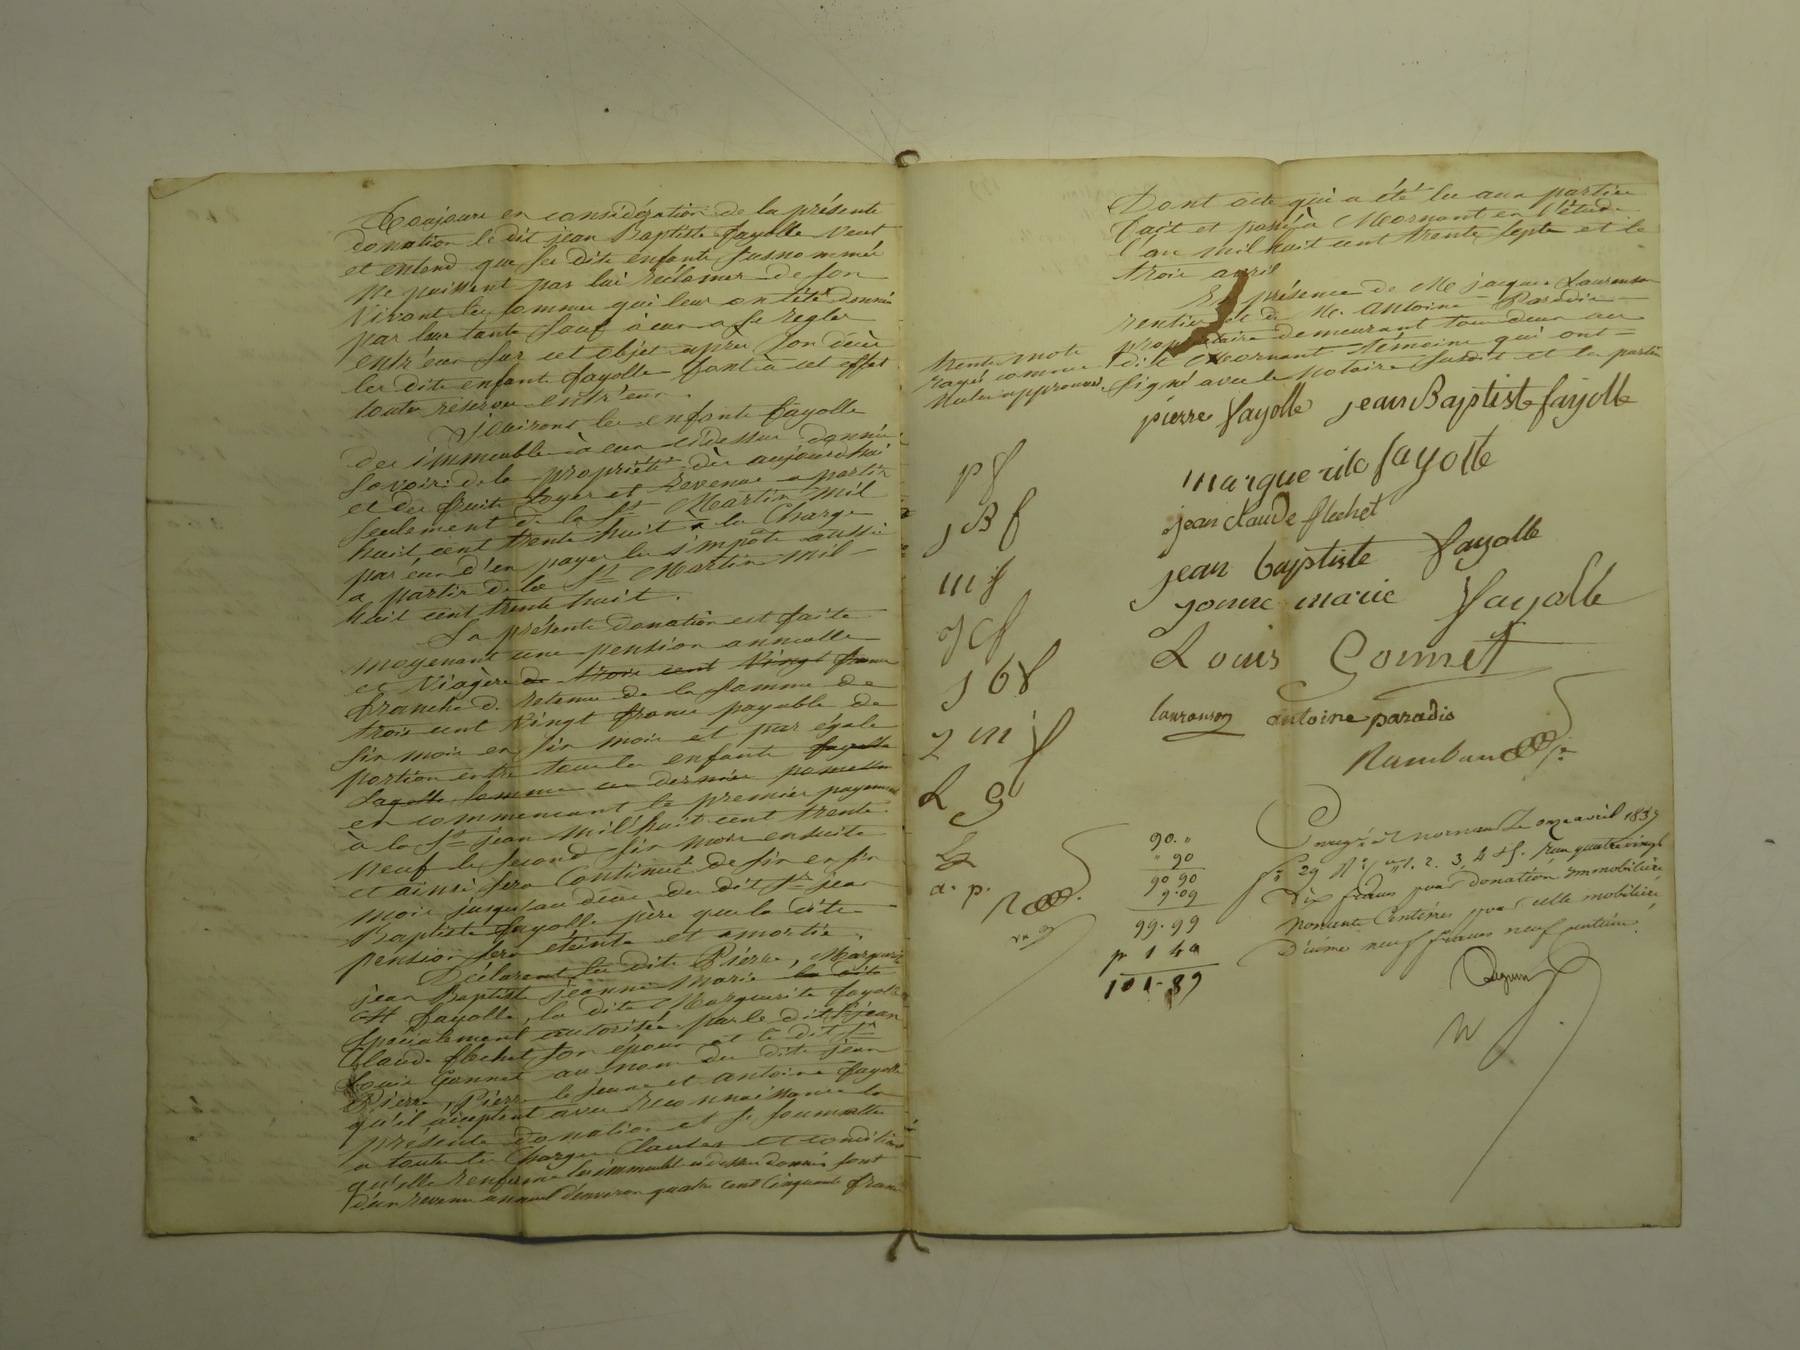 Toujours en considération de la présente
donation le dit jean Baptiste fayolle veut
et entend que ses dits enfants susnommés
ne puissent pas lui réclamer de son
vivant les sommes qui leur ont été données
par leur tante sauf à eux a se regler
entr'eux sur cet objet après son décès
les dits enfants fayolle font à cet effet
toutes réserves entr'eux.
Jouiront les enfants fayolle
des immeubles à eux cidessus donnés
savoir de la propriété dès aujourdhui
et des fruits loyers et revenus a partir
seulement de la St Martin mil
huit cent trente huit a la charge
par eux d'en payer les s'impôts aussi
a partir de la St Martin mil
huit cent trente huit.
La présente donation est faite
moyenant une pension annuelle
et viagère de trois cent vingt francs
franche de retenue de la somme de
trois cent vingt francs payable de
six mois en six mois et par égale
portion entre tous les enfants fayolle
Lagolle comme ce dernier
en commencant le premier payement
à la St jean mil huit cent trente
neuf le second six mois ensuite
et ainsi sera continué de six en six
mois jusqu'au décès du dit Sr jean
Baptiste fayolle père que la dite
pension sera éteinte et amortie.
Déclarent les dits Pierre, Marguerite
jean Baptiste jeanne Marie la dite
fayolle, la dite Marguerite fayolle
spécialement autorisée par le dit Sr jean
Claude flechet son époux et le dit Sr
Louis Gonnet au nom des dits jean
Pierre, Pierre le jeune et antoine fayolle
qu'il acceptent avec reconnaissance la
présente donation et se soumettre
a toutes les charges clauses et conditions
qu'elle renferme les immeubles ci dessus donnés sont
d'un revenu annuel d'environ quatre cent cinquante francs
Dont acte qui a été lu aux parties
fait et passé à Mornant en l'étude
l'an mil huit cent trente sept et le
trois avril
En présence de Me jacques Lauranson
rentier et de Me. antoine Paradis
propriétaire demeurant tous deux au
dit Mornant témoins qui ont
signé avec le notaire susdit et les parties
trente mots
rayés comme
nuls approuvés
pierre fayolle jean Baptiste fayolle
marguerite fayolle
jean claude flechet
jean baptiste fayolle
janne marie fayolle
Louis Gonnet
lauranson antoine paradis
Rambaud
p f
j B f
m f
j c f
j b f
j m f
L G
L
a. p.
R
90. "
" 90
90 90
9.09
99.99
p 1 90
101.89
Enregré à Mornant le onze avril 1837
fo 29 Ro c. 1. 2. 3, 4 et 5. Reçu quatrevingt
dix francs pour donation immobilière
nonante Centimes pour celle mobilière
décime neuf francs neuf centimes.